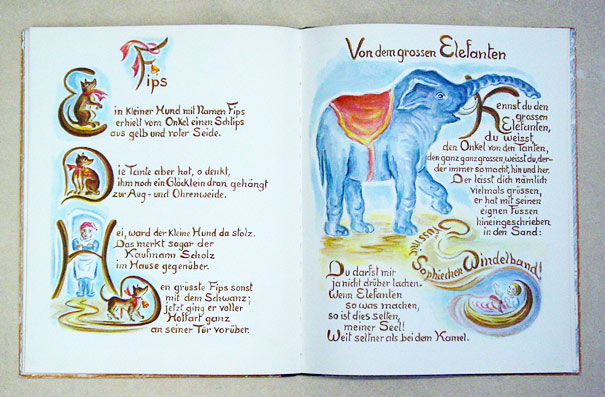 Fips
Ein kleiner Hund mit Namen Fips
erhielt vom Onkel einen Schlips
aus gelb und roter Seide.
Die Tante aber hat, o denkt,
ihm noch ein Glöcklein dran gehängt
zur Aug- und Ohrenweide.
Hei, ward der kleine Hund da stolz.
Das merkt sogar der
Kaufmann Scholz
im Hause gegenüber.
Den grüsste Fips sonst
mit dem Schwanz;
jetzt ging er voller
Hoffart ganz
an seiner Tür vorüber.
Von dem grossen Elefanten
Kennst du den
grossen
Elefanten,
du weisst,
den Onkel von den Tanten,
den ganz ganz grossen, weisst du, der-
der immer so macht, hin und her.
Der lässt dich nämlich
vielmals grüssen,
er hat mit seinen
eignen Füssen
hineingeschrieben
in den Sand:
Grüss mir
Sophiechen Windelband!
Du darfst mir
ja nicht drüber lachen.
Wenn Elefanten
so was machen,
so ist dies selten,
meiner Seel!
Weit seltner als bei dem Kamel.